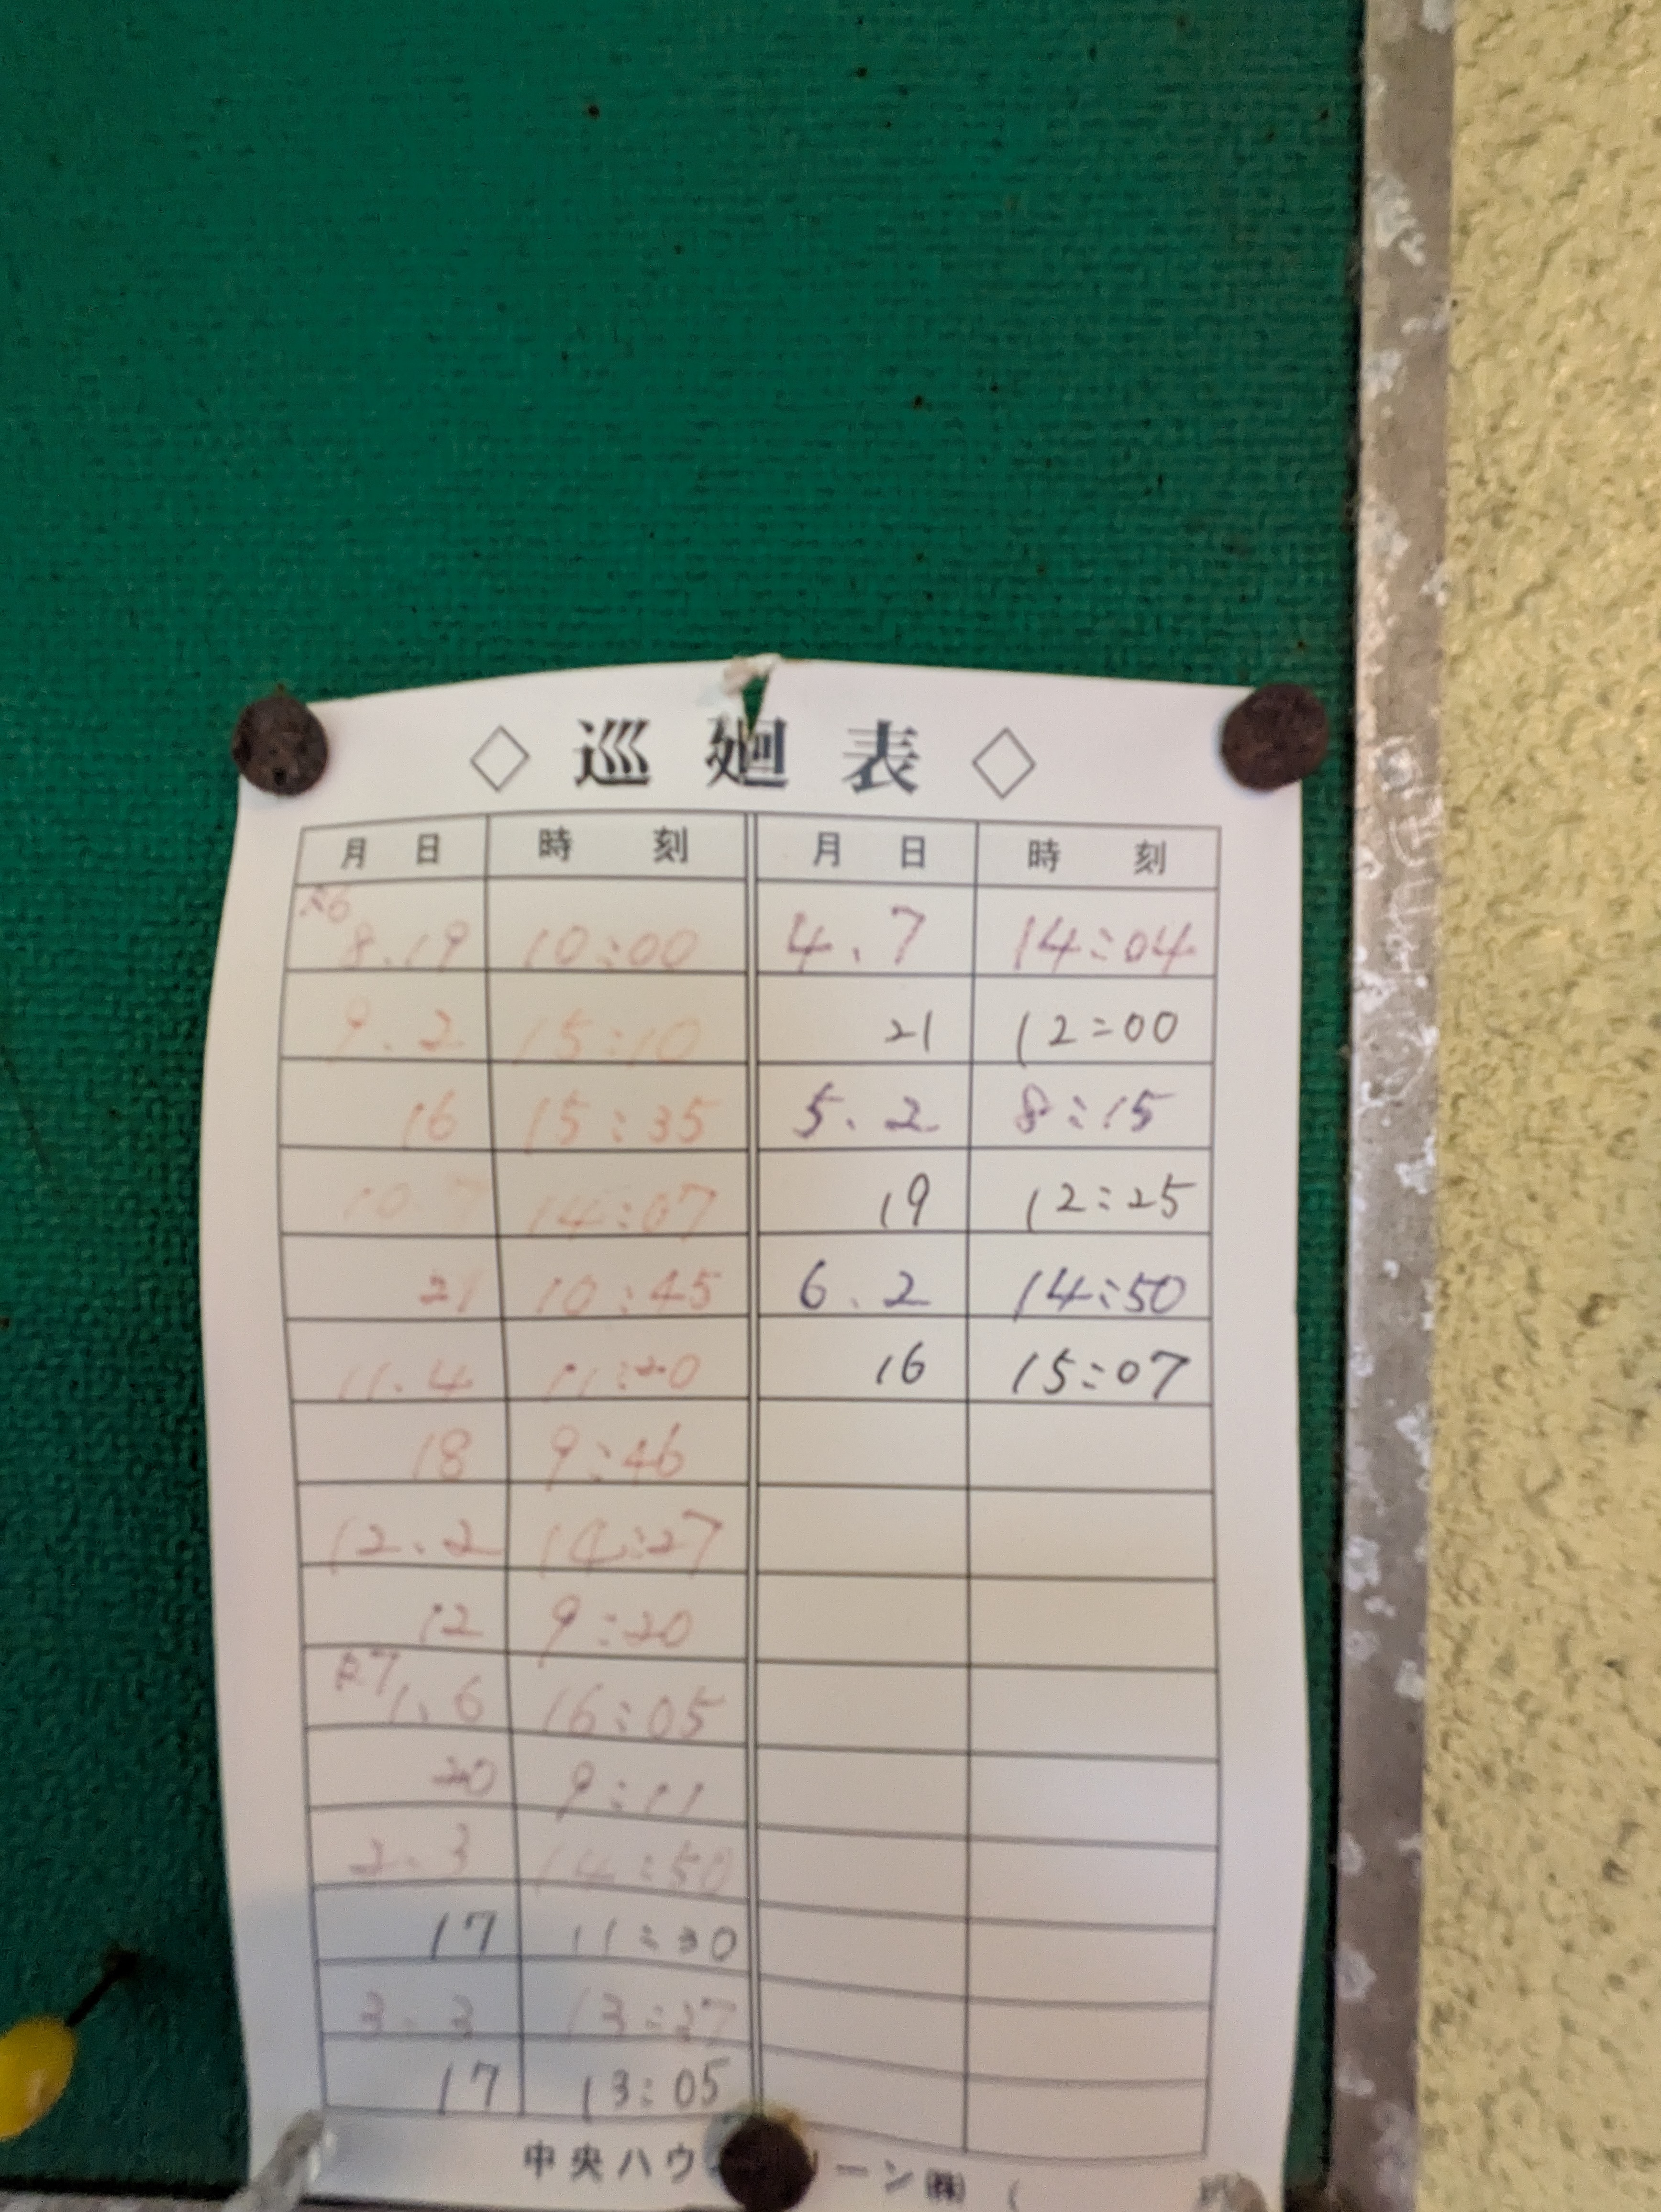 ◇ 巡 廻 表 ◇
月 日 時 刻 月 日 時 刻
8.19 10:00 4.7 14:04
9.2 15:10 21 12:00
16 15:35 5.2 8:15
10.7 14:07 19 12:25
21 10:45 6.2 14:50
11.4 11:20 16 15:07
18 9:46
12.2 14:27
12 9:20
1.6 16:05
20 9:11
2.3 14:50
17 11:30
3.3 13:27
17 13:05
中央ハウ ーン㈱ (